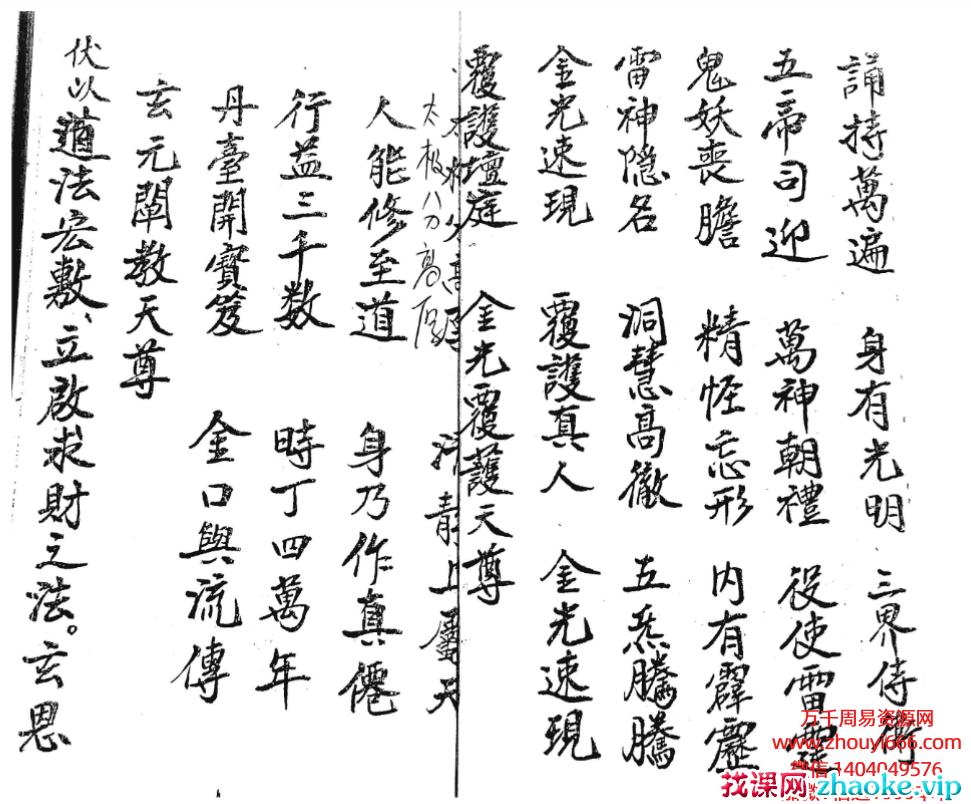 誦持萬遍 身有光明 三界侍衛
五帝司迎 萬神朝禮 役使雷霆
鬼妖喪膽 精怪忘形 内有霹靂
雷神隐名 洞慧高徹 五炁騰騰
金光速現 覆護真人 金光速現
覆護壇庭 金光覆護天尊
太极八方高厚 青上屬天
人能修至道 身乃作真僊
行益三千数 時丁四萬年
丹臺開寶笈 金口與流傳
玄元闡教天尊
伏以道法宏敷、立啟求財之法。玄恩
万千周易资源网
www.zhouyi666.com
微信1404049576
找课网:zhaoke.vip